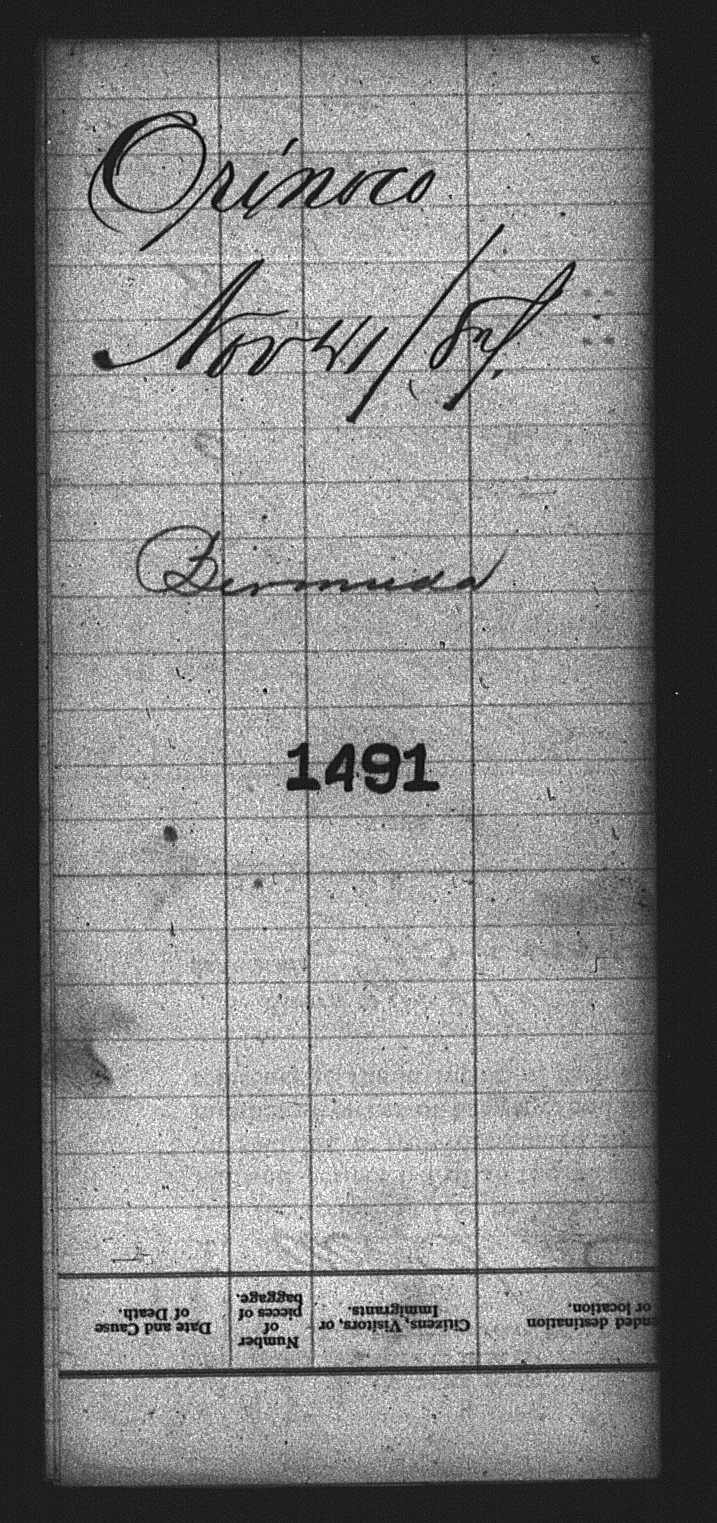 Orinoco
Nov 21/87.
Bermuda
1491
nded destination
or location.
Citizens, Visitors, or
Immigrants.
Number
of
pieces of
baggage.
Date and Cause
of Death.